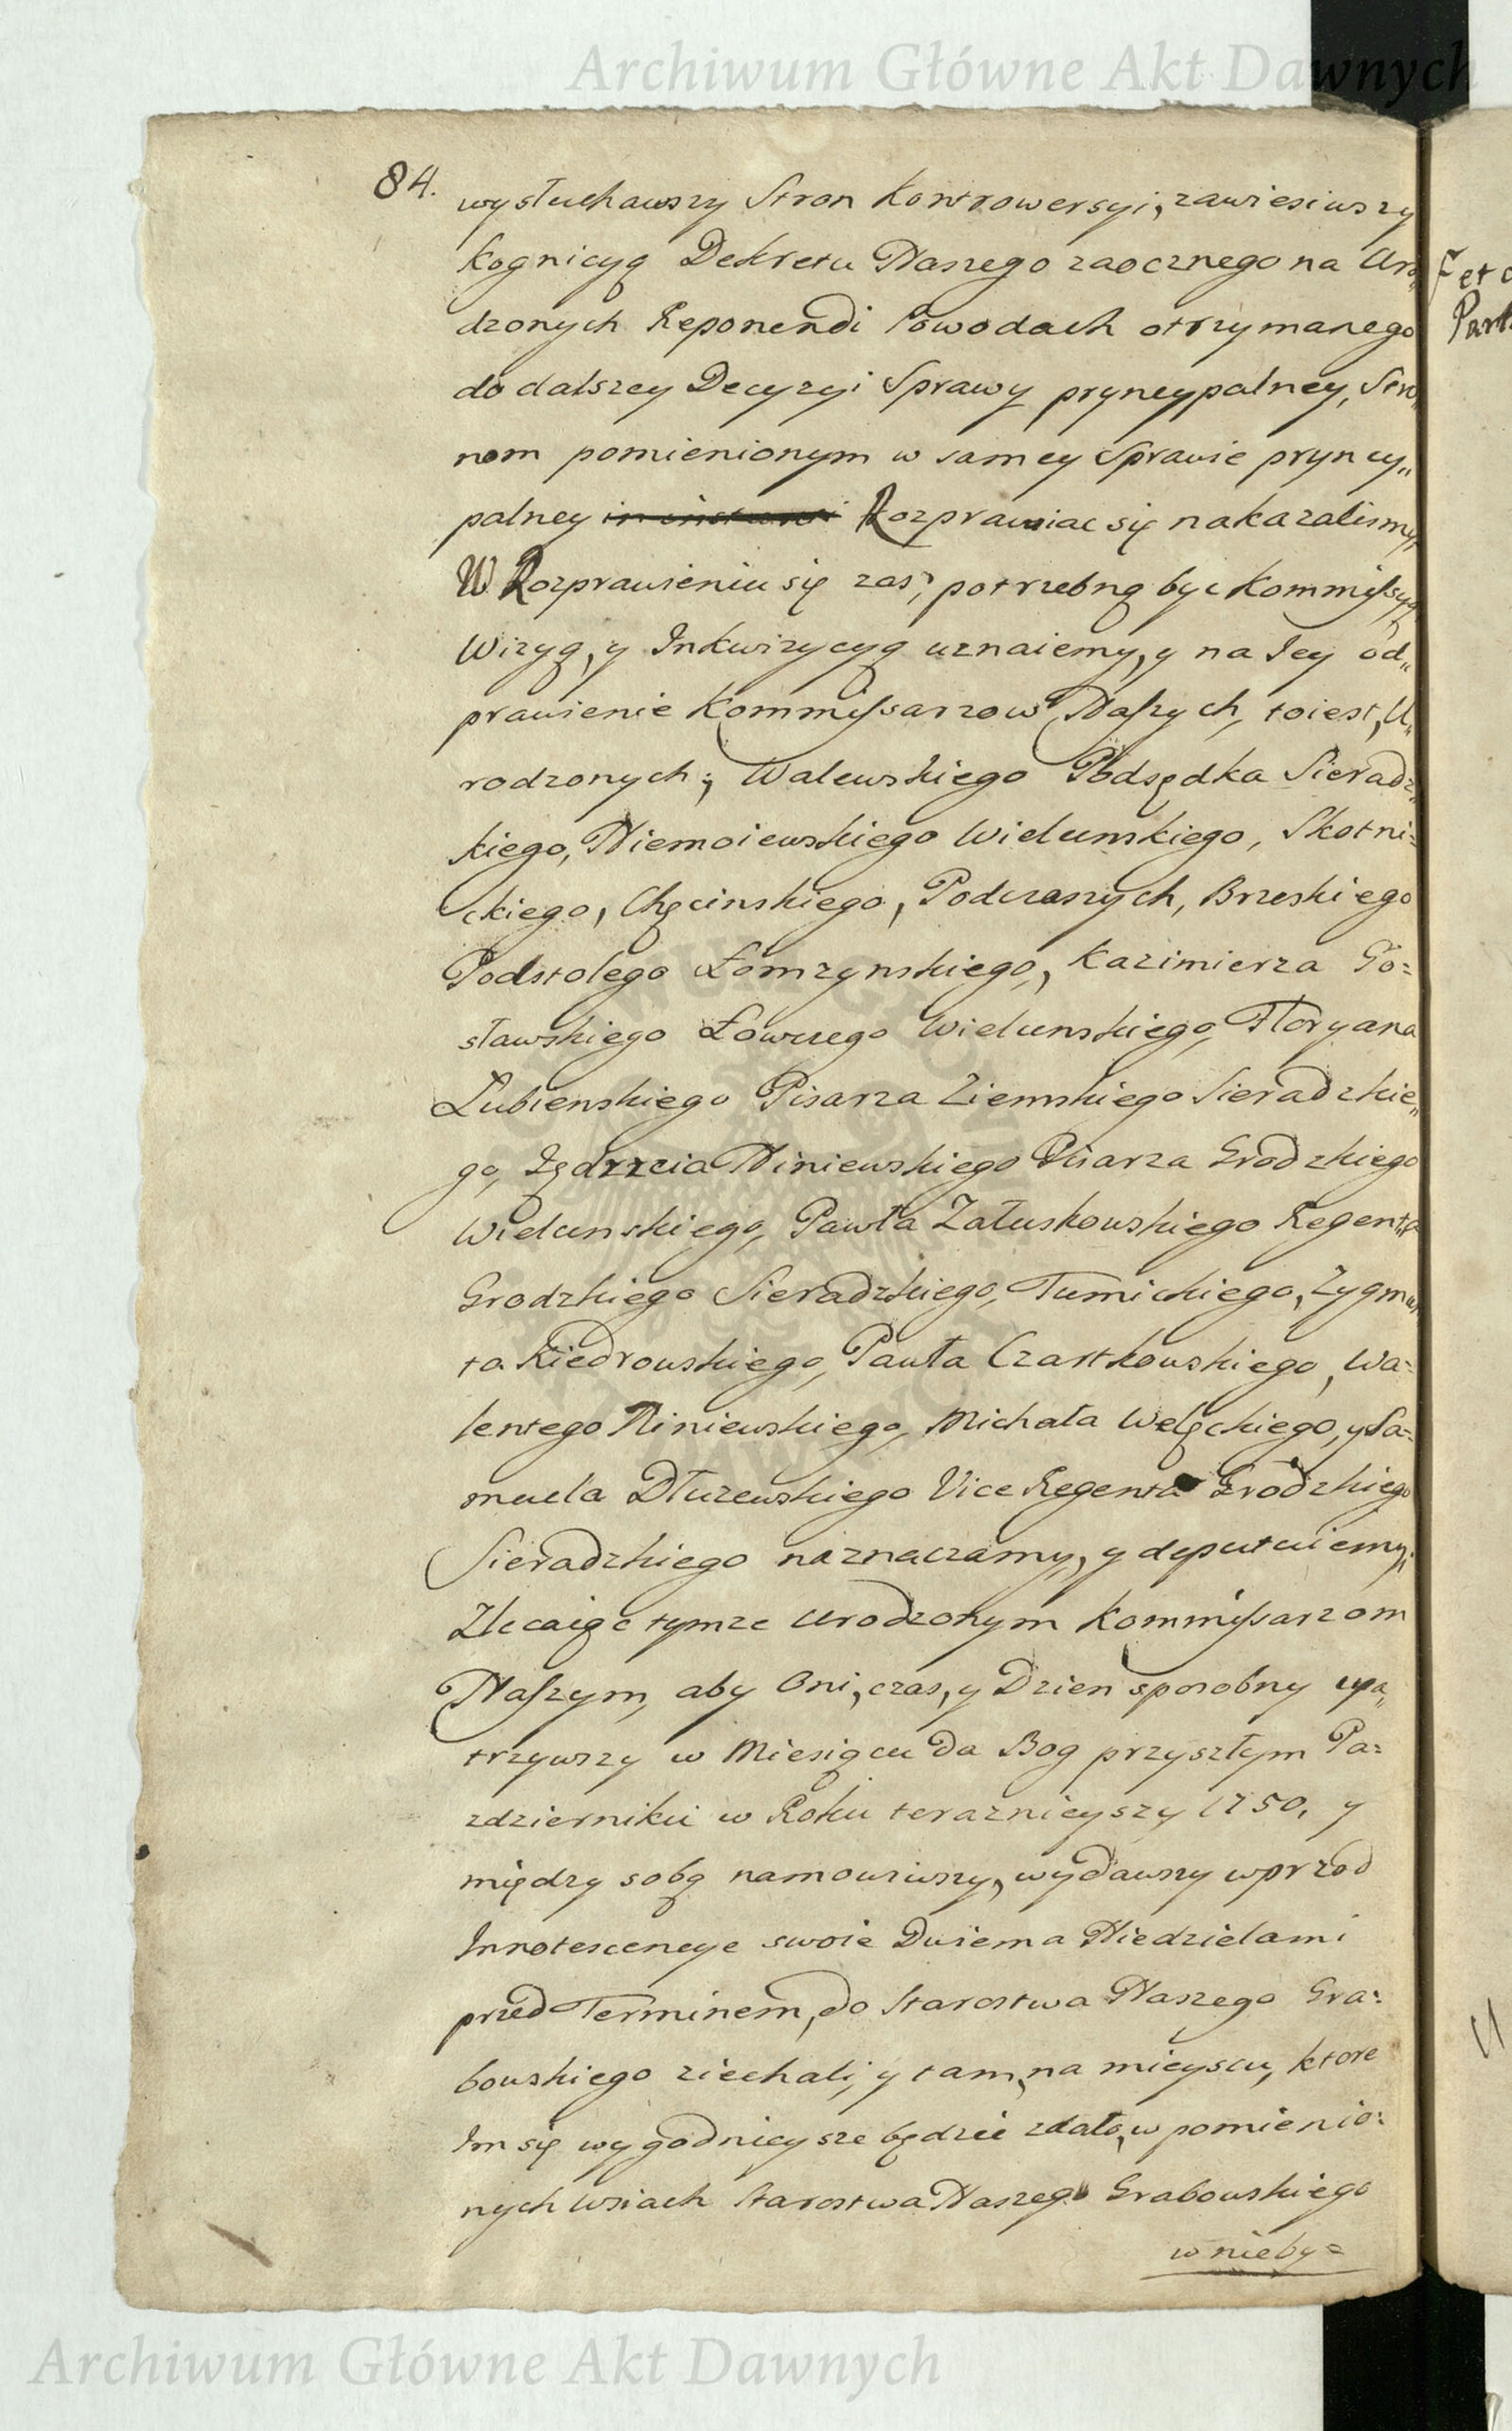 Archiwum Główne Akt Dawnych
84.
wysłuchawszy Stron Kontrowersyi, zawiesiwszy
kognicyą Dekretu Naszego zaocznego na Uro„
dzonych Reponendi Powodach otrzymanego
do dalszey Decyzyi Sprawy pryncypalney, Stro„
nom pomienionym w samey Sprawie pryncy„
palney Rozprawiac się nakazalismy,
W Rozprawieniu się zas, potrzebną byc Kommissyą
Wizyą, y Inkwizycyą uznaiemy, y na Iey od„
prawienie Kommissarzow Naszych, toiest, U„
rodzonych; Walewskiego Podsędka Sieradz„
kiego, Niemoiewskiego Wielunskiego, Skotni=
ckiego, Chęcinskiego, Podczaszych, Brzeskiego
Podstolego Łomzynskiego, Kazimierza Go=
sławskiego Łowczego Wielunskiego, Floryana
Łubienskiego Pisarza Ziemskiego Sieradzkie„
go, Iędrzeia Niniewskiego Pisarza Grodzkiego
Wielunskiego, Pawła Załuskowskiego Regenta
Grodzkiego Sieradzkiego, Tumickiego, Zygmun
ta Kiedrowskiego, Pawła Czartkowskiego, Wa=
lentego Niniewskiego, Michała Welęckiego, y Sa=
muela Dłuzewskiego Vice Regenta Grodzkiego
Sieradzkiego naznaczamy, y deputuiemy;
Zlecaiąc tymze Urodzonym Kommissarzom
Naszym, aby Oni, czas, y Dzien sposobny upa„
trzywszy w Miesiącu Da Bog przyszłym Pa=
zdzierniku w Roku teraznieyszy 1750, y
między sobą namowiwszy, wydawszy wprzod
Innotescencye swoie Dwiema Niedzielami
przed Terminem, do Starostwa Naszego Gra=
bowskiego ziechali, y tam, na mieyscu, ktore
Im się wygodnieysze będzie zdało, w pomienio=
nych Wsiach Starostwa Naszego Grabowskiego
w nieby=
Archiwum Główne Akt Dawnych